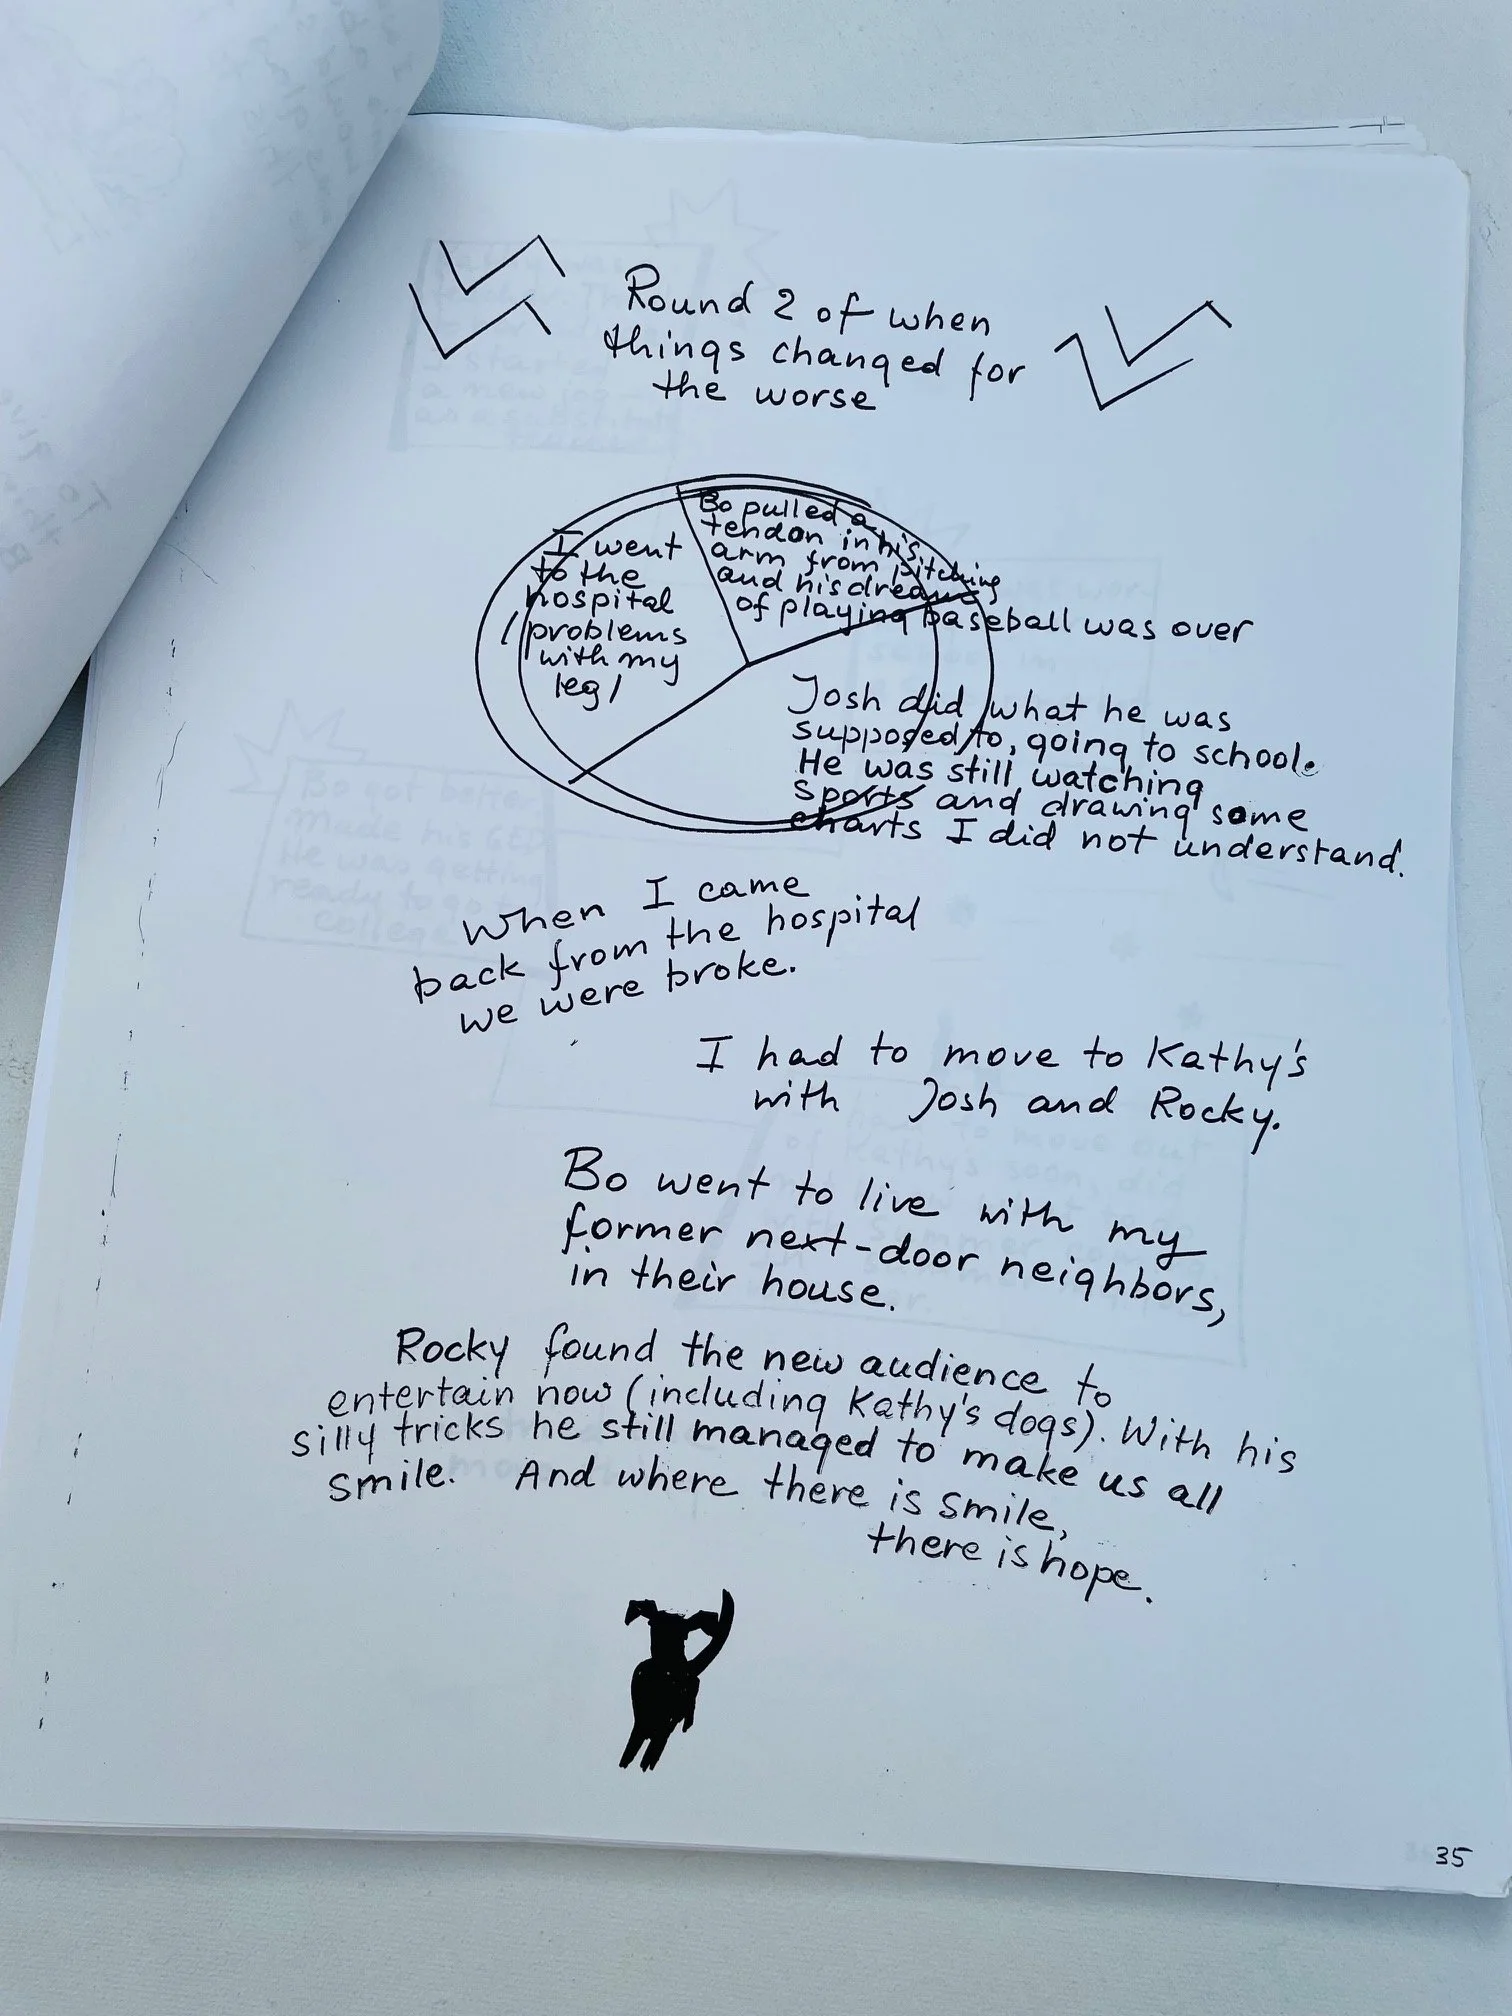 Round 2 of when
things changed for
the worse
I went
to the
hospital
/problems
with my
leg/
Bo pulled a
tendon in his
arm from pitching
and his dream
of playing baseball was over
Josh did what he was
supposed to, going to school.
He was still watching
sports and drawing some
charts I did not understand.
When I came
back from the hospital
we were broke.
I had to move to Kathy's
with Josh and Rocky.
Bo went to live with my
former next-door neighbors,
in their house.
Rocky found the new audience to
entertain now (including Kathy's dogs). With his
silly tricks he still managed to make us all
smile. And where there is smile,
there is hope.
35